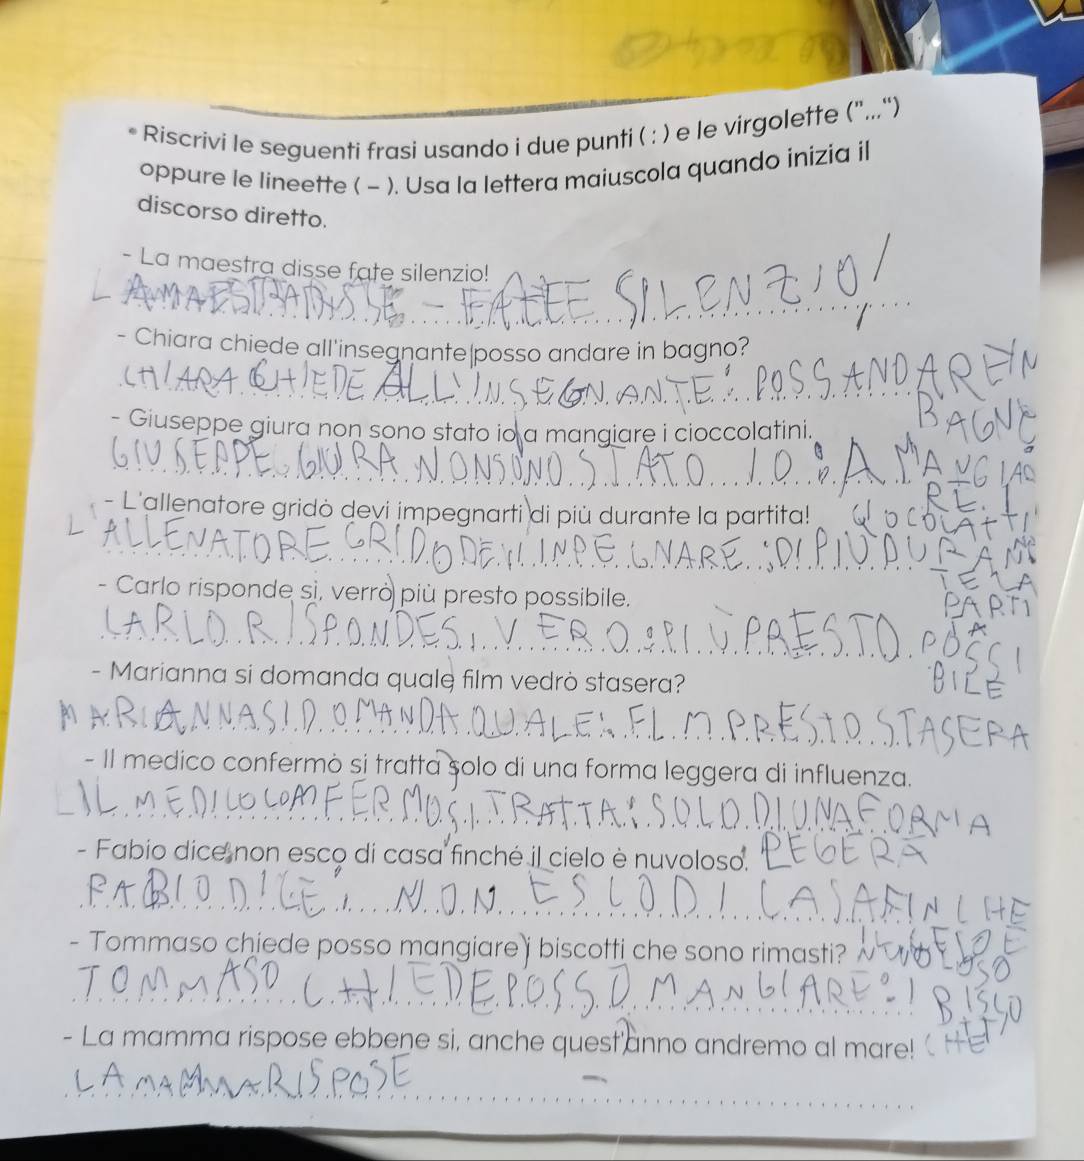 * Riscrivi le seguenti frasi usando i due punti ( : ) e le virgolette ("...“)
oppure le lineette ( - ). Usa la lettera maiuscola quando inizia il
discorso diretto.
- La maestra disse fate silenzio!
LA MAESTRA DISSE - FATE SILENZIO!
- Chiara chiede all'insegnante posso andare in bagno?
CHIARA CHIEDE ALL'INSEGNANTE: POSSANDAREIN
BAGNO
- Giuseppe giura non sono stato io a mangiare i cioccolatini.
GIUSEPPE GIURA NONSONO STATO IO: A MANGIA
RE. I
- L'allenatore gridò devi impegnarti di più durante la partita!
L'ALLENATORE GRIDO DEVI INPEGNARE: DI PIÙ DURAN
TE LA
PARTI
A
- Carlo risponde sì, verrò più presto possibile.
CARLO RISPONDE SI VERO: PIU PRESTO POSSI
BILE
- Marianna si domanda quale film vedrò stasera?
MARIANNA SI DOMANDA QUALE: FLM PRESTO STASERA
- Il medico confermò si tratta solo di una forma leggera di influenza.
IL MEDICO COMFERMO SI TRATTA: SOLO DI UNA FORMA
LEGERA
- Fabio dice non esco di casa finché il cielo è nuvoloso.
FABIO DICE: NON ESCO DI CASA FINCHE
- Tommaso chiede posso mangiare i biscotti che sono rimasti?
TOMMASO CHIEDE POSSO MANGIARE: I BISCO
TT
CHE
- La mamma rispose ebbene sì, anche quest'anno andremo al mare!
LA MAMMA RISPOSE -